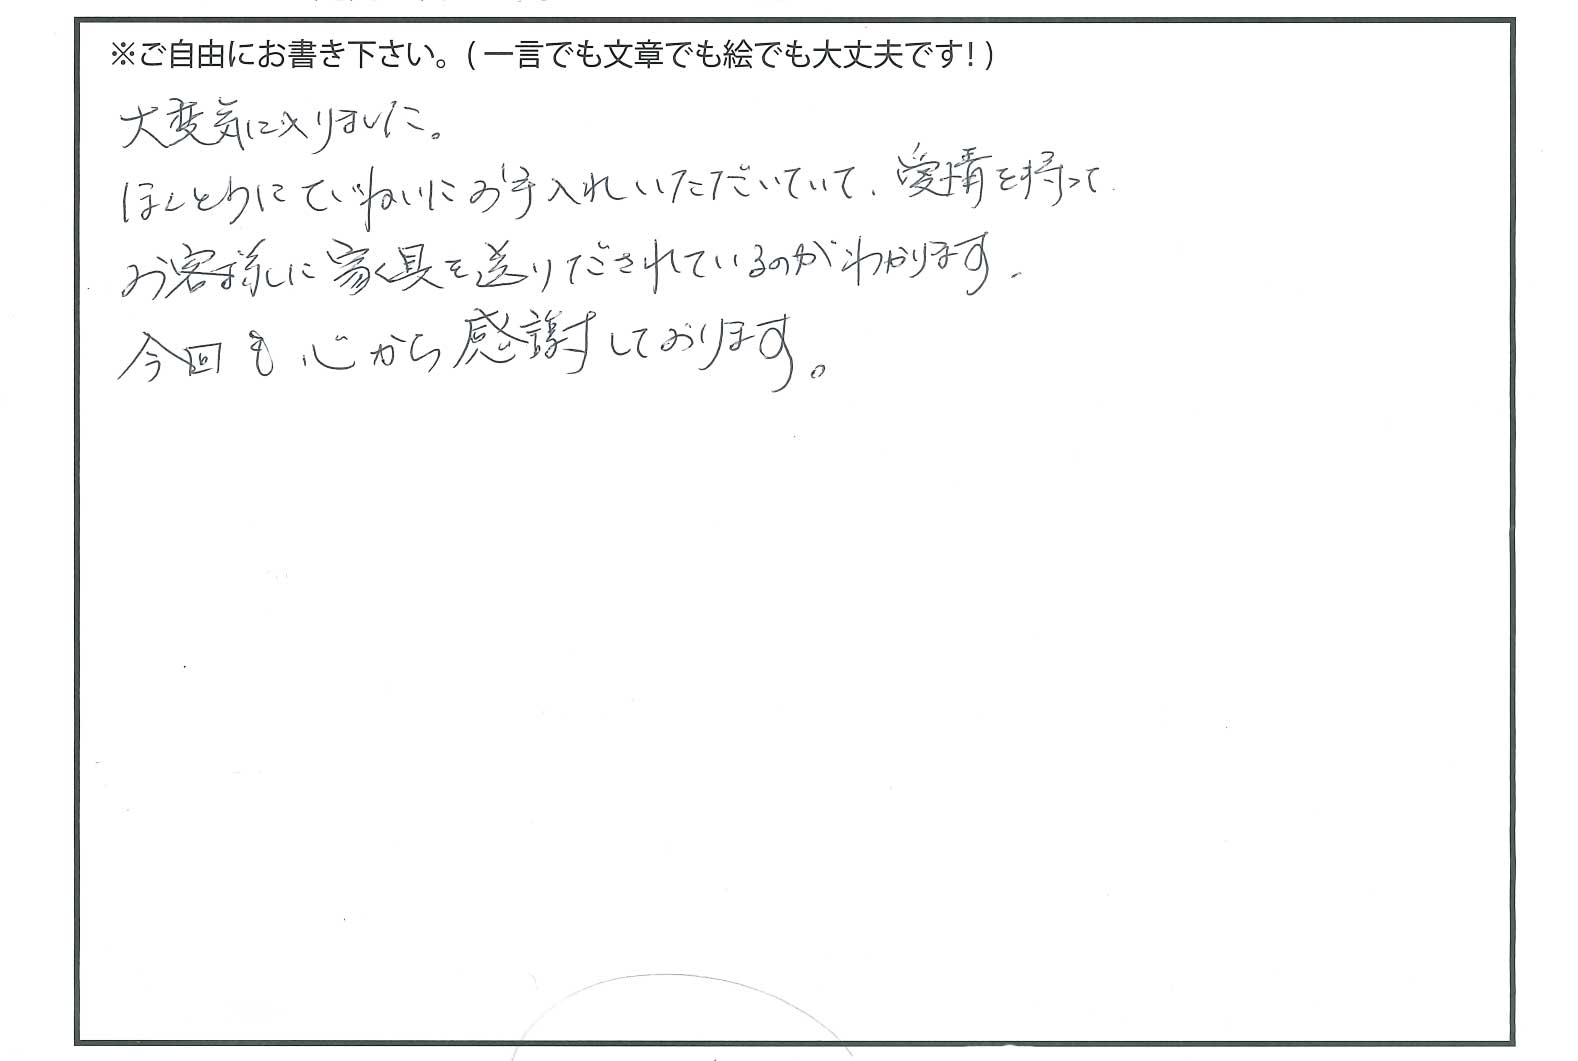 ※ご自由にお書き下さい。(一言でも文章でも絵でも大丈夫です!)
大変気に入りました。
ほんとうにていねいにお手入れいただいていて、愛情を持って
お客様に家具を送りだされているのがわかります。
今回も心から感謝しております。